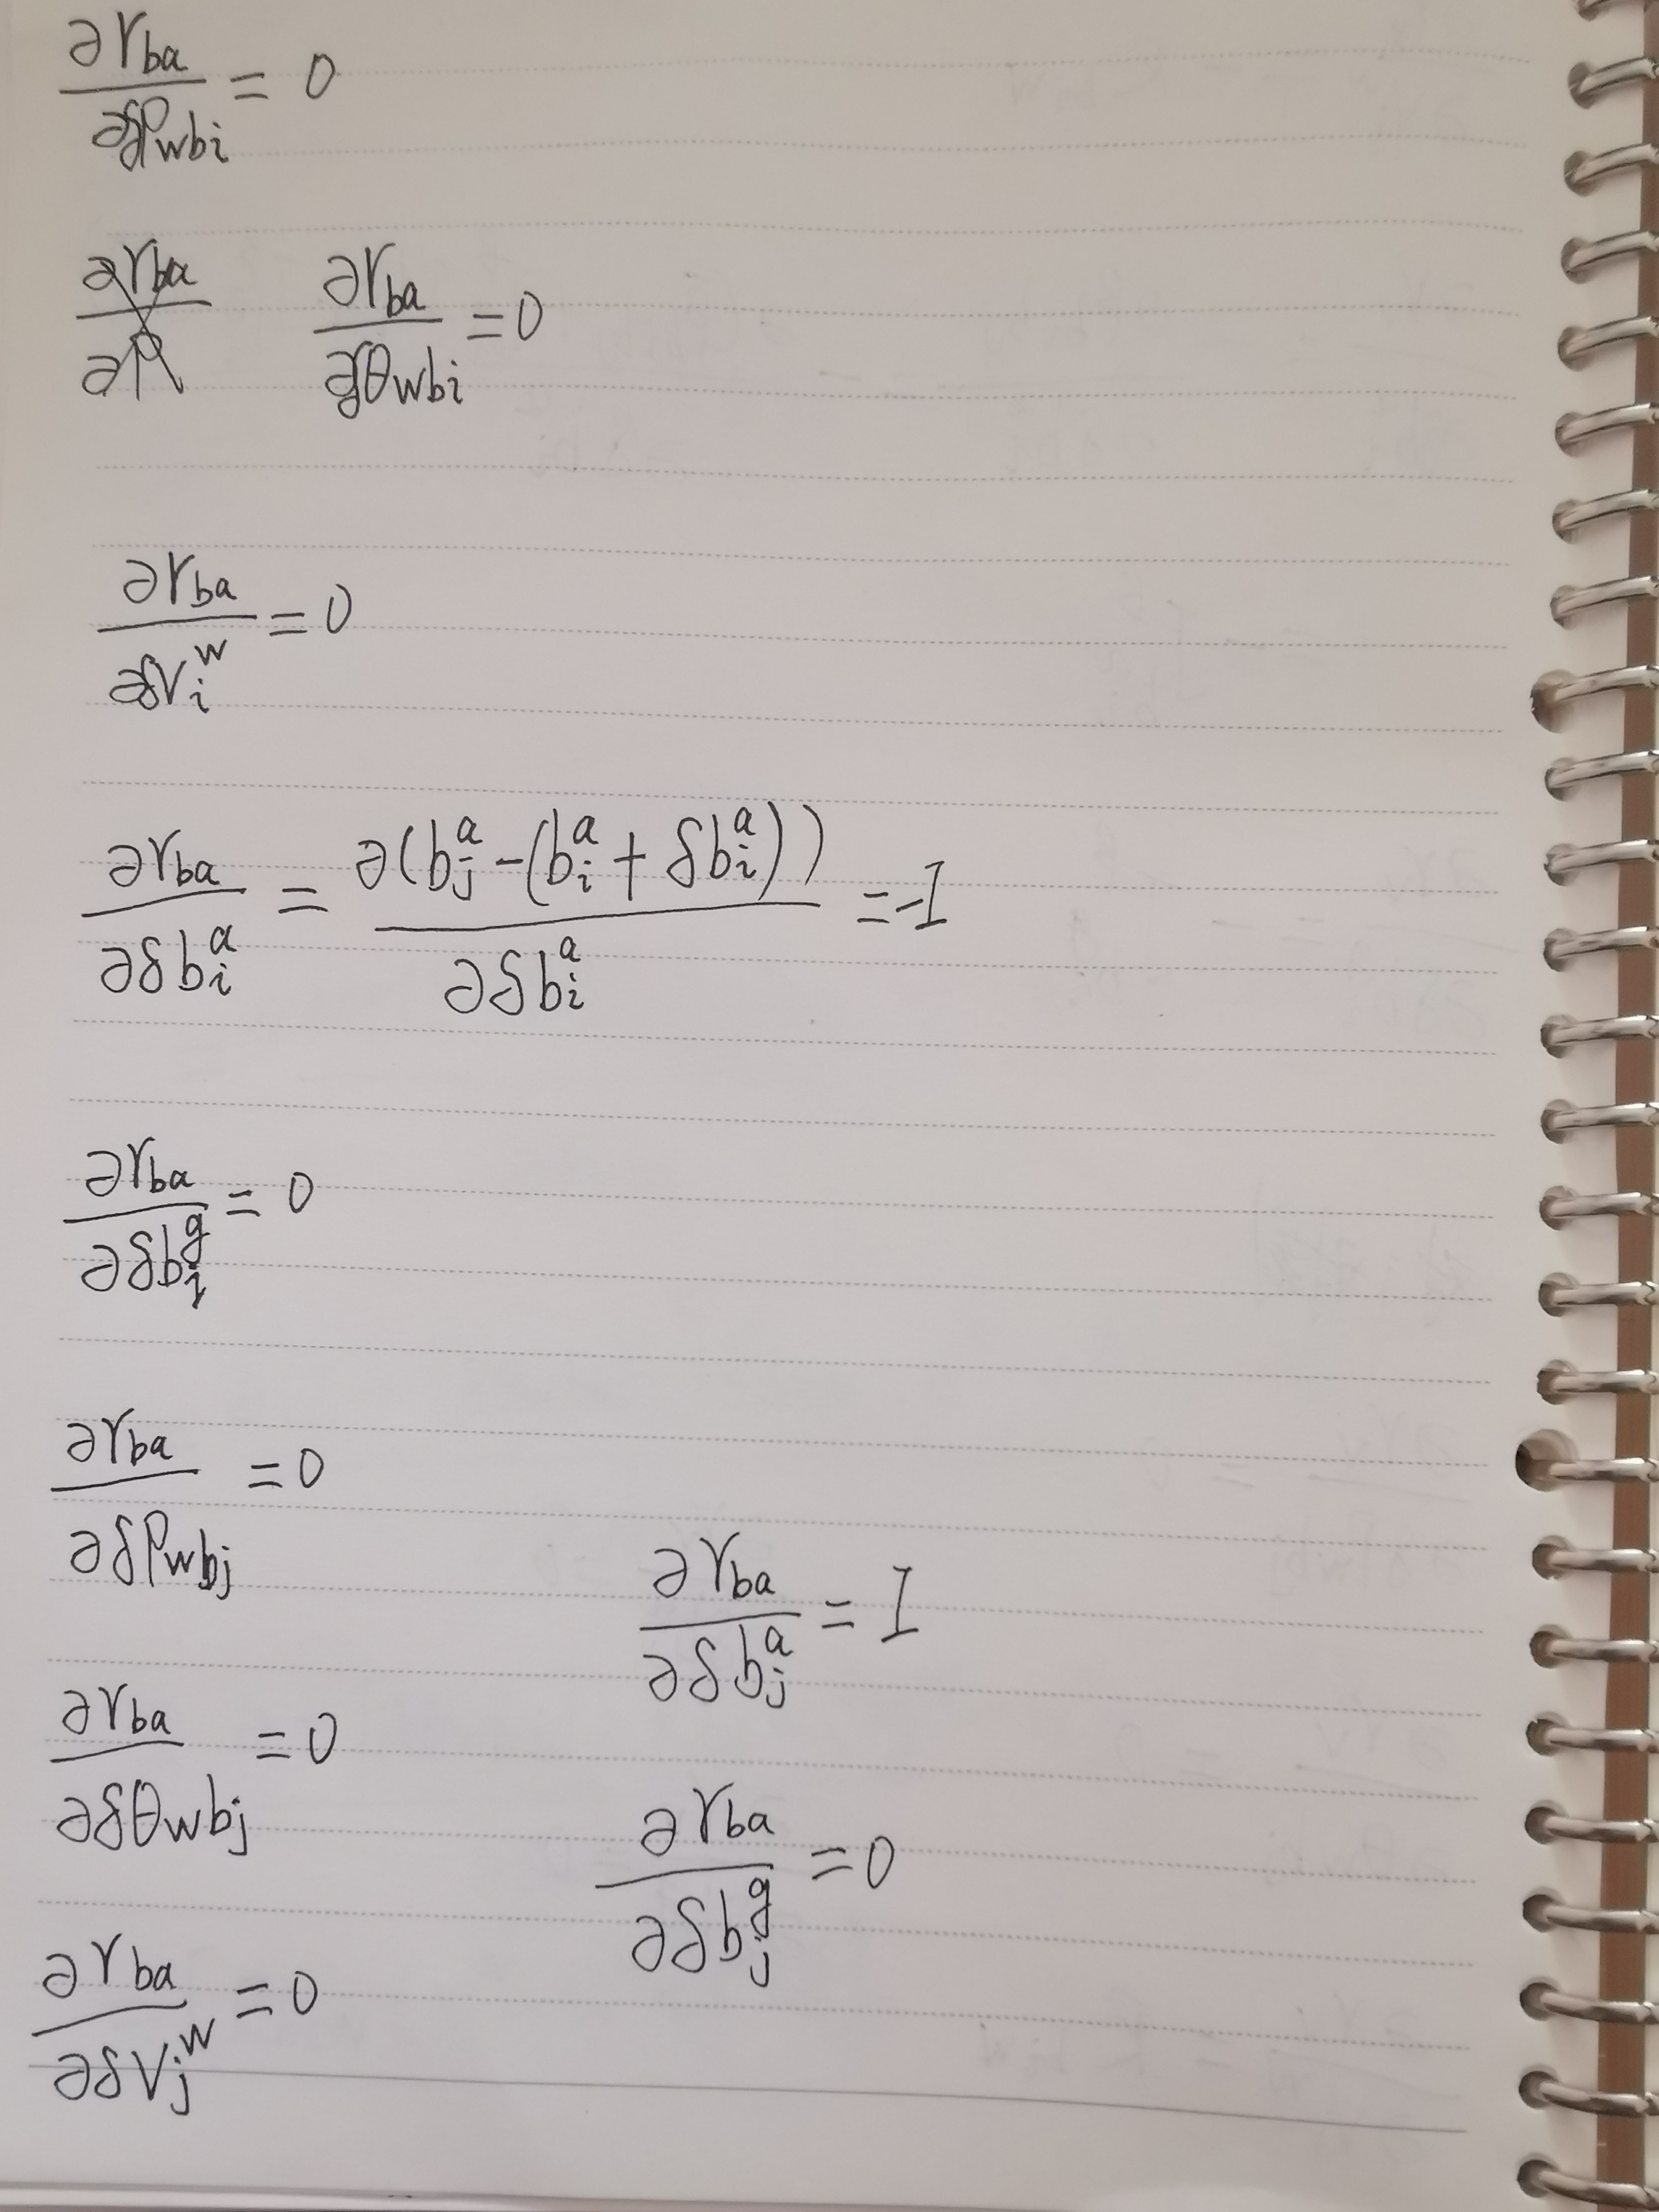 ∂r_ba / ∂δP_wbi = 0
∂r_ba / ∂δθ_wbi = 0
∂r_ba / ∂δV_i^w = 0
∂r_ba / ∂δb_i^a = ∂(b_j^a - (b_i^a + δb_i^a)) / ∂δb_i^a = -I
∂r_ba / ∂δb_i^g = 0
∂r_ba / ∂δP_wbj = 0
∂r_ba / ∂δθ_wbj = 0
∂r_ba / ∂δV_j^w = 0
∂r_ba / ∂δb_j^a = I
∂r_ba / ∂δb_j^g = 0